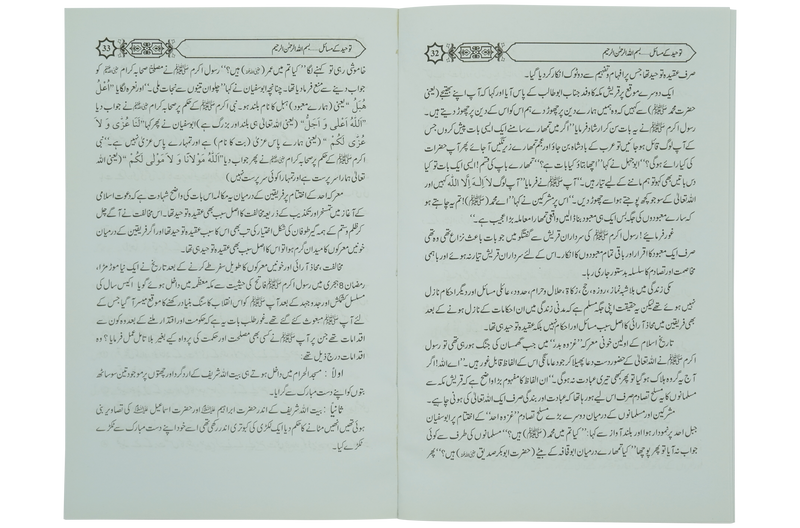 32 توحید کے مسائل ..... بسم اللہ الرحمٰن الرحیم
صرف عقیدہ توحید تھا جس پر افہام و تفہیم سے دوٹوک انکار کر دیا گیا۔
ایک دوسرے موقع پر قریش مکہ کا وفد جناب ابوطالب کے پاس آیا اور کہا کہ آپ اپنے بھتیجے (یعنی
حضرت محمد ﷺ) سے کہیں کہ وہ ہمیں ہمارے دین پر چھوڑ دے ہم اس کو اس کے دین پر چھوڑ دیتے ہیں۔
رسول اکرم ﷺ نے یہ بات سن کر ارشاد فرمایا ”اگر میں تمہارے سامنے ایک ایسی بات پیش کروں جس
کے آپ لوگ قائل ہو جائیں تو عرب کے بادشاہ بن جاؤ اور عجم تمہارے زیرنگیں آجائے پھر آپ حضرات
کی کیا رائے ہوگی؟“ ابوجہل نے کہا ”اچھا بتاؤ کیا بات ہے؟ تمہارے باپ کی قسم! ایسی ایک بات تو کیا
دس باتیں بھی کہو تو ہم ماننے کے لئے تیار ہیں۔“ آپ ﷺ نے فرمایا ”آپ لوگ لَا اِلٰهَ اِلَّا اللّٰهُ کہیں اور
اللہ تعالیٰ کے سوا جو کچھ پوجتے ہو اسے چھوڑ دیں۔“ اس پر مشرکین نے کہا ”اے محمد (ﷺ)! تم یہ چاہتے ہو
کہ سارے معبودوں کی جگہ بس ایک ہی معبود بنا ڈالیں واقعی تمہارا معاملہ بڑا عجیب ہے۔“
غور فرمائیے! رسول اکرم ﷺ کی سرداران قریش سے گفتگو میں جو بات باعث نزاع تھی وہ تھی
صرف ایک معبود کا اقرار اور باقی تمام معبودوں کا انکار۔ اس کے لئے سرداران قریش تیار نہ ہوئے اور باہمی
مخاصمت اور تصادم کا سلسلہ بدستور جاری رہا۔
مکی زندگی میں بلاشبہ نماز، روزہ، حج، زکاۃ، حلال و حرام، حدود، عائلی مسائل اور دیگر احکام نازل
نہیں ہوئے تھے لیکن یہ حقیقت اپنی جگہ مسلم ہے کہ مدنی زندگی میں ان احکامات کے نازل ہونے کے بعد
بھی فریقین میں محاذ آرائی کا اصل سبب مسائل اور احکام نہیں بلکہ عقیدہ توحید ہی تھا۔
تاریخ اسلام کے اولین خونی معرکہ ”غزوہ بدر“ میں جب گھمسان کی جنگ ہو رہی تھی تو رسول
اکرم ﷺ نے اللہ تعالیٰ کے حضور دست دعا پھیلا کر جو دعا مانگی اس کے الفاظ قابل غور ہیں۔ ”اے اللہ! اگر
آج یہ گروہ ہلاک ہو گیا تو پھر کبھی تیری عبادت نہ ہوگی۔“ ان الفاظ کا مفہوم بڑا واضح ہے کہ قریش مکہ سے
مسلمانوں کا یہ مسلح تصادم صرف اس لئے ہو رہا تھا کہ عبادت اور بندگی صرف ایک اللہ تعالیٰ کی ہونی چاہیے۔
مشرکین اور مسلمانوں کے درمیان دوسرے بڑے مسلح تصادم ”غزوہ احد“ کے اختتام پر ابوسفیان
جبل احد پر نمودار ہوا اور بلند آواز سے کہا: ”کیا تم میں محمد (ﷺ) ہیں؟“ مسلمانوں کی طرف سے کوئی
جواب نہ آیا تو پھر پوچھا ”کیا تمہارے درمیان ابوقحافہ کے بیٹے (حضرت ابوبکر صدیق رضی اللہ عنہ) ہیں؟“ پھر
33 توحید کے مسائل ..... بسم اللہ الرحمٰن الرحیم
خاموشی رہی تو کہنے لگا ”کیا تم میں عمر (رضی اللہ عنہ) ہیں؟“ رسول اکرم ﷺ نے مصلحتاً صحابہ کرام رضی اللہ عنہم کو
جواب دینے سے منع فرما دیا تھا۔ چنانچہ ابوسفیان نے کہا ”چلو ان تینوں سے نجات ملی۔“ اور نعرہ لگایا ”اُعْلُ
هُبَلُ “ یعنی (ہمارے معبود) ہبل کا نام بلند ہو۔ نبی اکرم ﷺ کے حکم پر صحابہ کرام رضی اللہ عنہم نے جواب دیا
”اَللّٰهُ اَعْلٰی وَ اَجَلُّ “ (یعنی اللہ تعالیٰ ہی بلند اور بزرگ ہے) ابوسفیان نے پھر کہا ”لَنَا عُزّٰی وَ لاَ
عُزّٰی لَکُمْ “ (یعنی ہمارے پاس عزیٰ (بت کا نام) ہے اور تمہارے پاس عزیٰ نہیں ہے۔“ نبی
اکرم ﷺ کے حکم پر صحابہ کرام رضی اللہ عنہم نے پھر جواب دیا ”اَللّٰهُ مَوْلاَنَا وَ لاَ مَوْلٰی لَکُمْ “ (یعنی اللہ
تعالیٰ ہمارا سرپرست ہے اور تمہارا کوئی سرپرست نہیں)
معرکہ احد کے اختتام پر فریقین کے درمیان یہ مکالمہ اس بات کی واضح شہادت ہے کہ دعوت اسلامی
کے آغاز میں تمسخر اور تکذیب کے ذریعہ مخالفت کا اصل سبب بھی عقیدہ توحید تھا۔ اس مخالفت نے آگے چل
کر ظلم و ستم کے ہمہ گیر طوفان کی شکل اختیار کی تب بھی اس کا سبب عقیدہ توحید تھا اور اگر فریقین کے درمیان
خونیں معرکوں کا میدان گرم ہوا تو اس کا اصل سبب بھی عقیدہ توحید ہی تھا۔
مخالفت، محاذ آرائی اور خونیں معرکوں کا طویل سفر طے کرنے کے بعد تاریخ نے ایک نیا موڑ مڑا،
رمضان 8 ہجری میں رسول اکرم ﷺ فاتح کی حیثیت سے مکہ معظمہ میں داخل ہوئے گویا اکیس سال کی
مسلسل کشمکش اور جدوجہد کے بعد آپ ﷺ کو اس انقلاب کا سنگ بنیاد رکھنے کا موقع میسر آ گیا جس کے
لئے آپ ﷺ مبعوث کئے گئے تھے۔ غور طلب بات یہ ہے کہ حکومت اور اقتدار ملنے کے بعد وہ کون سے
اقدامات تھے جن پر آپ ﷺ نے کسی بھی مصلحت اور حکمت کی پرواہ کیے بغیر بلا تامل عمل فرمایا؟ وہ
اقدامات درج ذیل تھے:
اولاً : مسجد الحرام میں داخل ہوتے ہی بیت اللہ شریف کے ارد گرد اور چھتوں پر موجود تین سو ساٹھ
بتوں کو اپنے دست مبارک سے گرایا۔
ثانیاً : بیت اللہ شریف کے اندر حضرت ابراہیم علیہ السلام اور حضرت اسماعیل علیہ السلام کی تصاویر بنی
ہوئی تھیں انھیں مٹانے کا حکم دیا ایک لکڑی کی کبوتری اندر رکھی تھی اسے خود اپنے دست مبارک سے ٹکڑے
ٹکڑے کیا۔